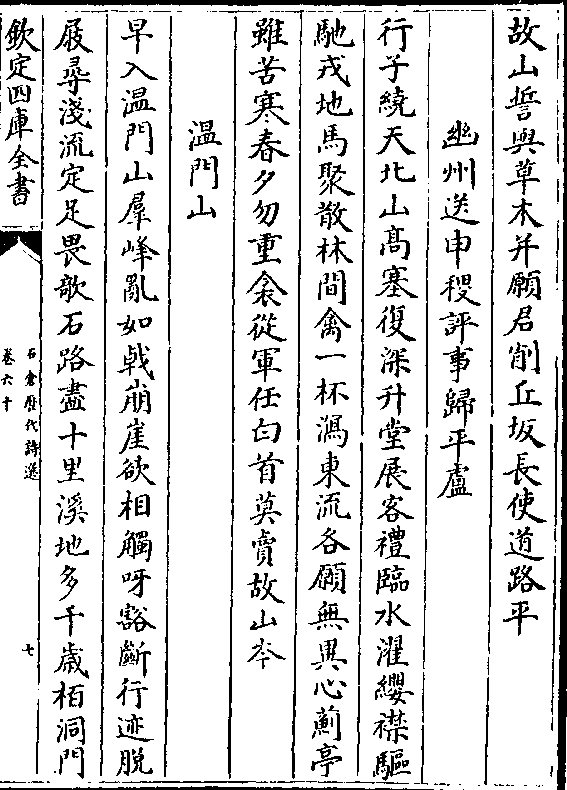 故山誓與草木并願君削丘坂長使道路平
幽州送申稷評事歸平盧
行子繞天北山髙塞復深升堂展客禮臨水濯纓襟驅
馳戎地馬聚散林間禽一杯瀉東流各願無異心薊亭
雖苦寒春夕勿重衾從軍任白首莫賣故山岑
温門山
早入温門山羣峰亂如戟崩崖欲相觸呀豁斷行迹脫
屐尋淺流定足畏欹石路盡十里溪地多千歲栢洞門
欽定四庫全書
石倉歴代詩選
卷六十
七